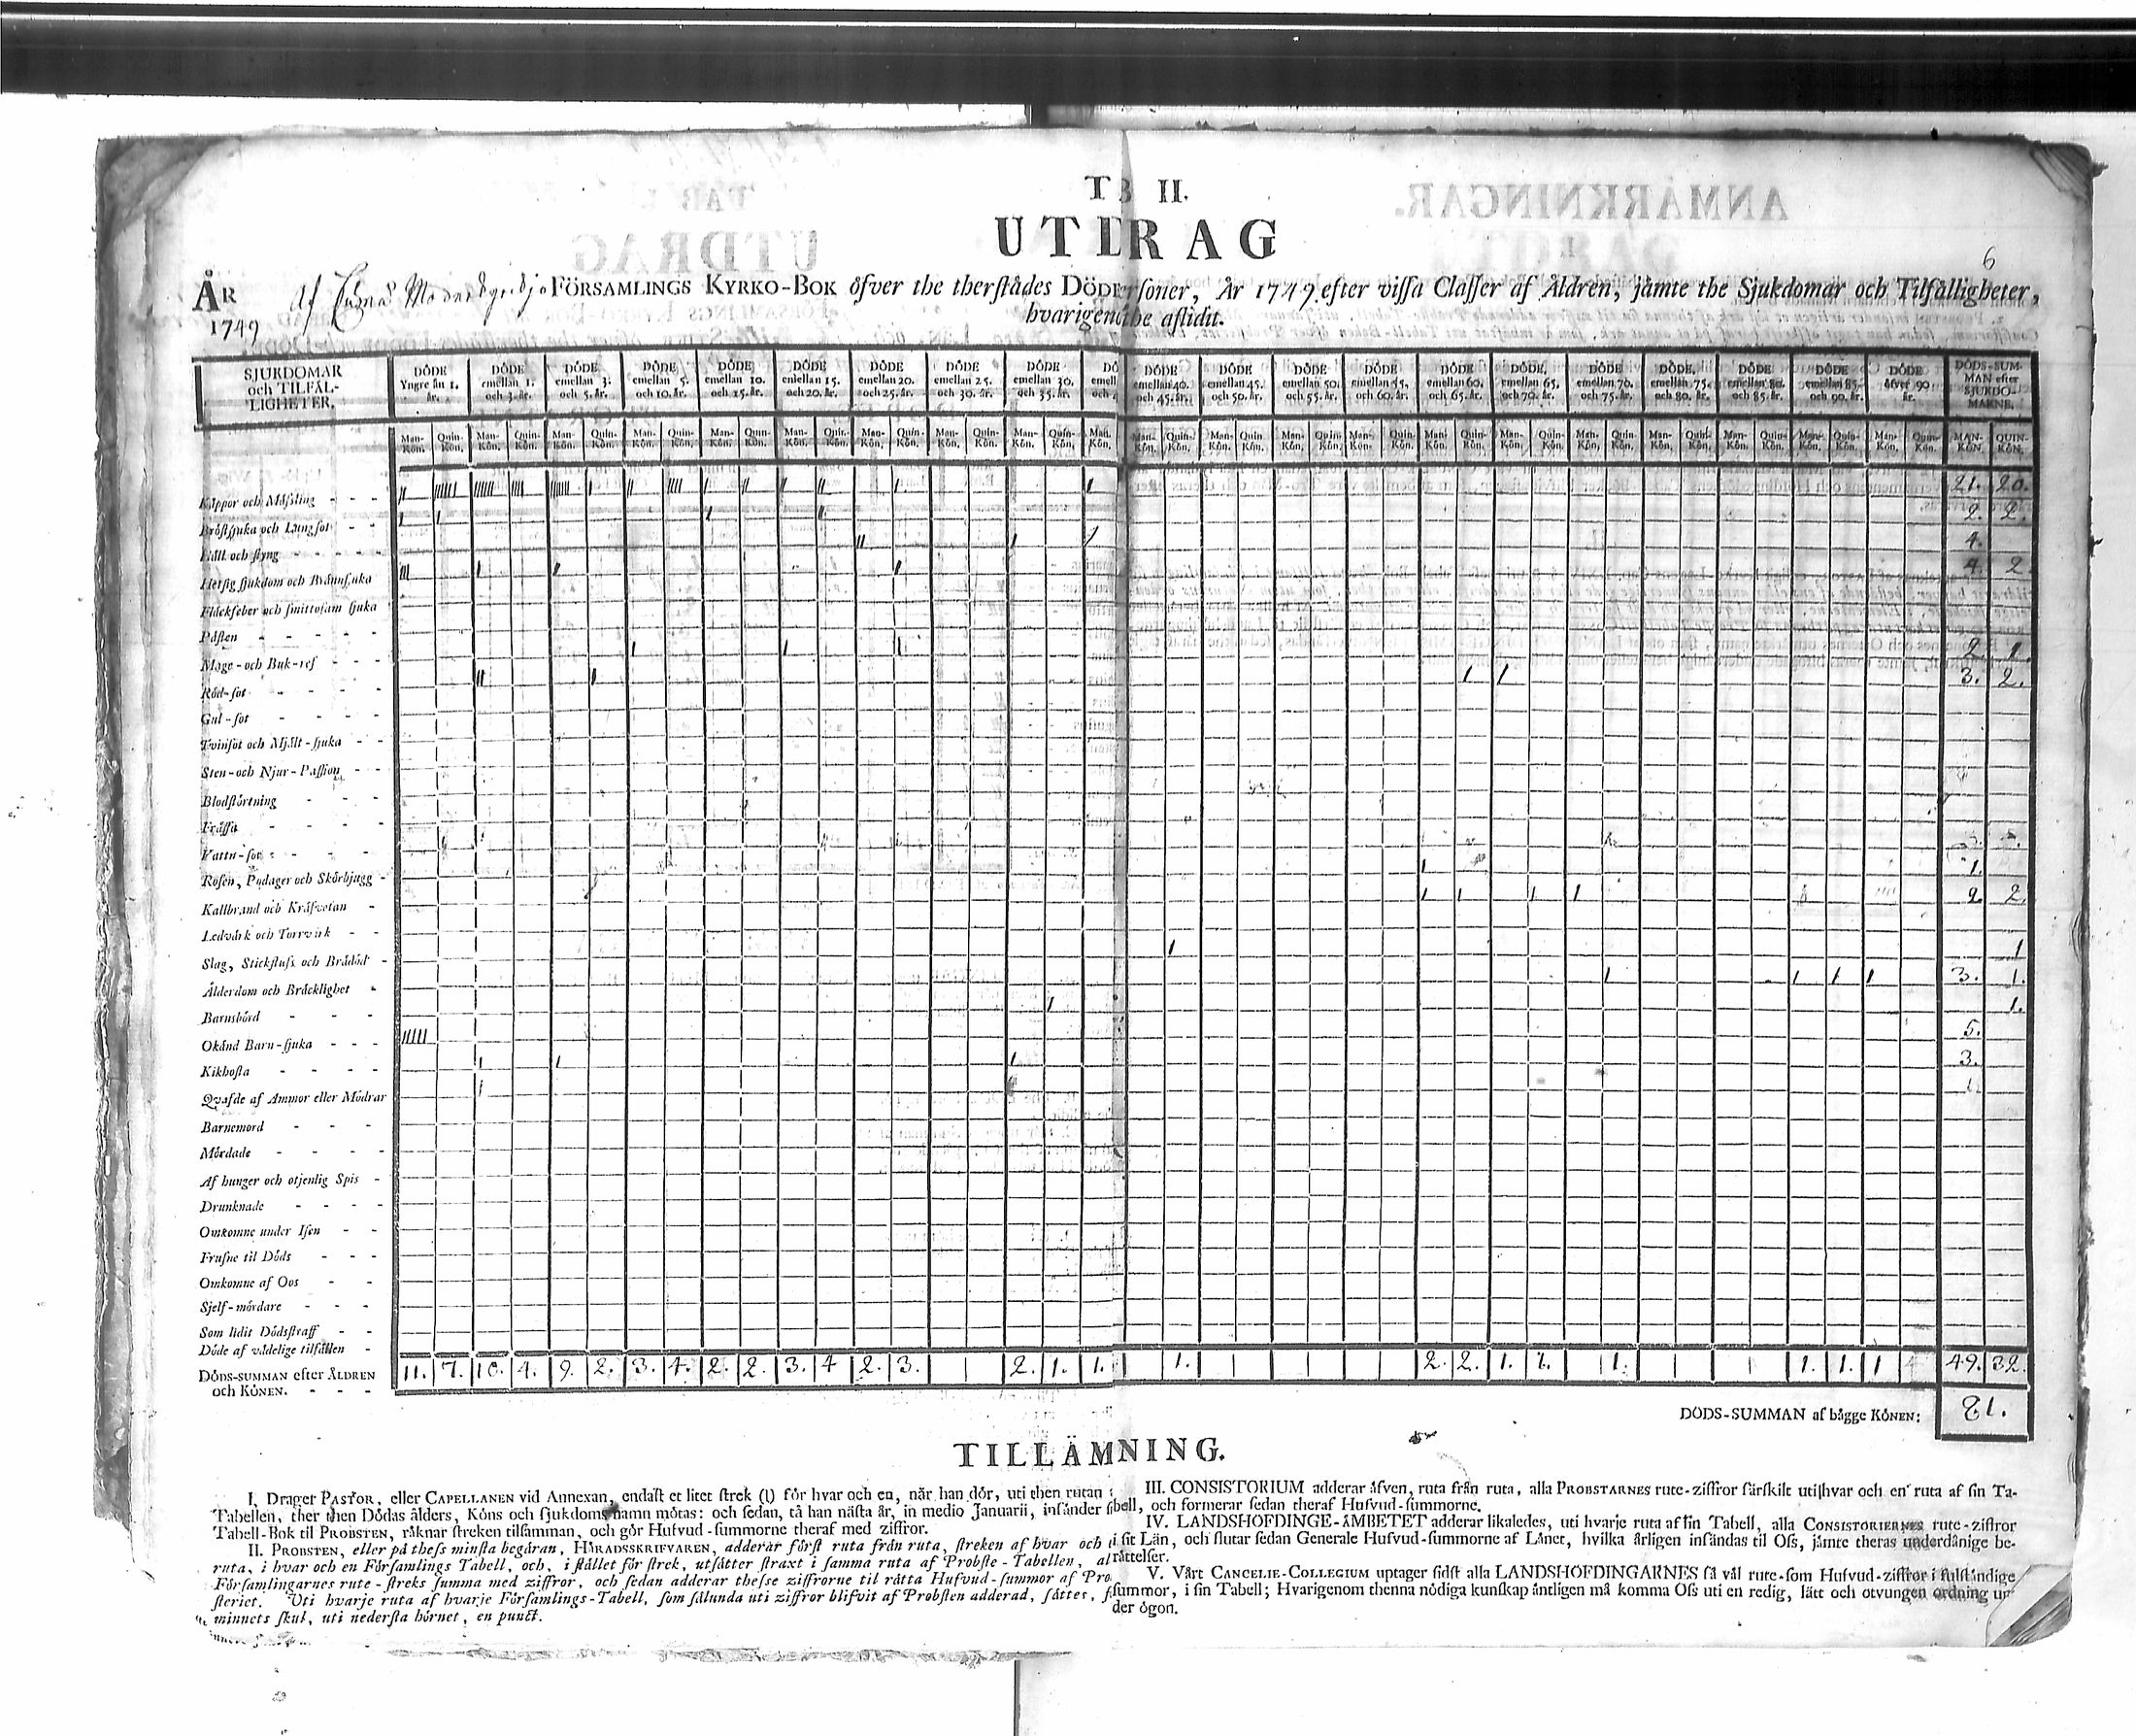 T B II.
UTDRAG
6
ÅR
1749
af Moderkyrkjo FÖRSAMLINGS KYRKO-BOK öfver the therstädes DÖDE soner, År 1749. efter vissa Classer af Åldren, jämte the Sjukdomar och Tilfälligheter,
hvarigenom the aflidit.
SJUKDOMAR och TILFÄL-LIGHETER.
DÖDE Yngre än 1. år.
DÖDE emellan 1. och 3. år.
DÖDE emellan 3. och 5. år.
DÖDE emellan 5. och 10. år.
DÖDE emellan 10. och 15. år.
DÖDE emellan 15. och 20. år.
DÖDE emellan 20. och 25. år.
DÖDE emellan 25. och 30. år.
DÖDE emellan 30. och 35. år.
DÖ emell och
DÖDE emellan 40. och 45. år.
DÖDE emellan 45. och 50. år.
DÖDE emellan 50. och 55. år.
DÖDE emellan 55. och 60. år.
DÖDE emellan 60. och 65. år.
DÖDE emellan 65. och 70. år.
DÖDE emellan 70. och 75. år.
DÖDE emellan 75. och 80. år.
DÖDE emellan 80. och 85. år.
DÖDE emellan 85. och 90. år.
DÖDE öfver 90. år.
DÖDS-SUM-MAN efter SJUKDO-MARNE.
Man-Kön. Quin-Kön. Man-Kön. Quin-Kön. Man-Kön. Quin-Kön. Man-Kön. Quin-Kön. Man-Kön. Quin-Kön. Man-Kön. Quin-Kön. Man-Kön. Quin-Kön. Man-Kön. Quin-Kön. Man-Kön. Quin-Kön. Man-Kön. Man-Kön. Quin-Kön. Man-Kön. Quin-Kön. Man-Kön. Quin-Kön. Man-Kön. Quin-Kön. Man-Kön. Quin-Kön. Man-Kön. Quin-Kön. Man-Kön. Quin-Kön. Man-Kön. Quin-Kön. Man-Kön. Quin-Kön. Man-Kön. Quin-Kön. Man-Kön. Quin-Kön. MAN-KÖN. QUIN-KÖN.
Koppor och Mässling - - - 21. 20.
Bröstsjuka och Lungsot - - 2. 2.
Håll och styng - - - - - 4.
Hetsig sjukdom och Brännsjuka 4. 2
Fläckfeber och smittosam sjuka
Pästen - - - - -
Mage- och Buk-ref - - - 2. 1.
Röd-sot - - - - 3. 2.
Gul-sot - - - -
Tvinsot och Mjält-sjuka - -
Sten- och Njur-Passion - -
Blodstörtning - - -
Frässa - - - -
Vattu-sot - - -
Rosen, Podager och Skörbjugg - 1.
Kallbrand och Kräfvetan - 2. 2.
Ledvärk och Torrvärk - -
Slag, Stickfluss och Brådöd - 1
Ålderdom och Bräcklighet - 3. 1.
Barnsbörd - - - 1.
Okänd Barn-sjuka - - - 5.
Kikhosta - - - - 3.
Qväfde af Ammor eller Mödrar 1.
Barnemord - - -
Mördade - - - -
Af hunger och otjenlig Spis -
Drunknade - - - -
Omkomne under Isen - -
Frusne til Döds - - -
Omkomne af Oos - -
Sjelf-mördare - - -
Som lidit Dödsstraff - -
Döde af vådelige tilfällen -
DÖDS-SUMMAN efter ÅLDREN och KÖNEN. - - - 11. 7. 10. 4. 9. 2. 3. 4. 2. 2. 3. 4 2. 3. 2. 1. 1. 1. 2. 2. 1. 1. 1. 1. 1. 1 49. 32.
DÖDS-SUMMAN af bägge KÖNEN: 81.
TILLÄMNING.
I. Drager PASTOR, eller CAPELLANEN vid Annexan, endast et litet strek (l) för hvar och en, när han dör, uti then rutan i
Tabellen, ther then Dödas ålders, Köns och sjukdoms namn mötas: och sedan, tå han nästa år, in medio Januarii, insänder
Tabell-Bok til PROBSTEN, räknar streken tilsamman, och gör Hufvud-summorne theraf med ziffror.
II. PROBSTEN, eller på thess minsta begäran, HÄRADSSKRIFVAREN, adderar först ruta från ruta, streken af hvar och
ruta, i hvar och en Församlings Tabell, och, i stället för strek, utsätter straxt i samma ruta af Probste-Tabellen, al
Församlingarnes rute-streks summa med ziffror, och sedan adderar thesse ziffrorne til rätta Hufvud-summor af Pro
steriet. Uti hvarje ruta af hvarje Församlings-Tabell, som sålunda uti ziffror blifvit af Probsten adderad, sättes,
minnets skul, uti nedersta hörnet, en punct.
III. CONSISTORIUM adderar äfven, ruta från ruta, alla PROBSTARNES rute-ziffror särskilt uti hvar och en ruta af sin Ta-
bell, och formerar sedan theraf Hufvud-summorne.
IV. LANDSHÖFDINGE-ÄMBETET adderar likaledes, uti hvarje ruta af sin Tabell, alla CONSISTORIERNES rute-ziffror
i sit Län, och slutar sedan Generale Hufvud-summorne af Länet, hvilka årligen insändas til Oss, jämte theras underdånige be-
rättelser.
V. Vårt CANCELIE-COLLEGIUM uptager sidst alla LANDSHÖFDINGARNES så väl rute-som Hufvud-ziffror i fulständige
summor, i sin Tabell; Hvarigenom thenna nödiga kunskap äntligen må komma Oss uti en redig, lätt och otvungen ordning un-
der ögon.